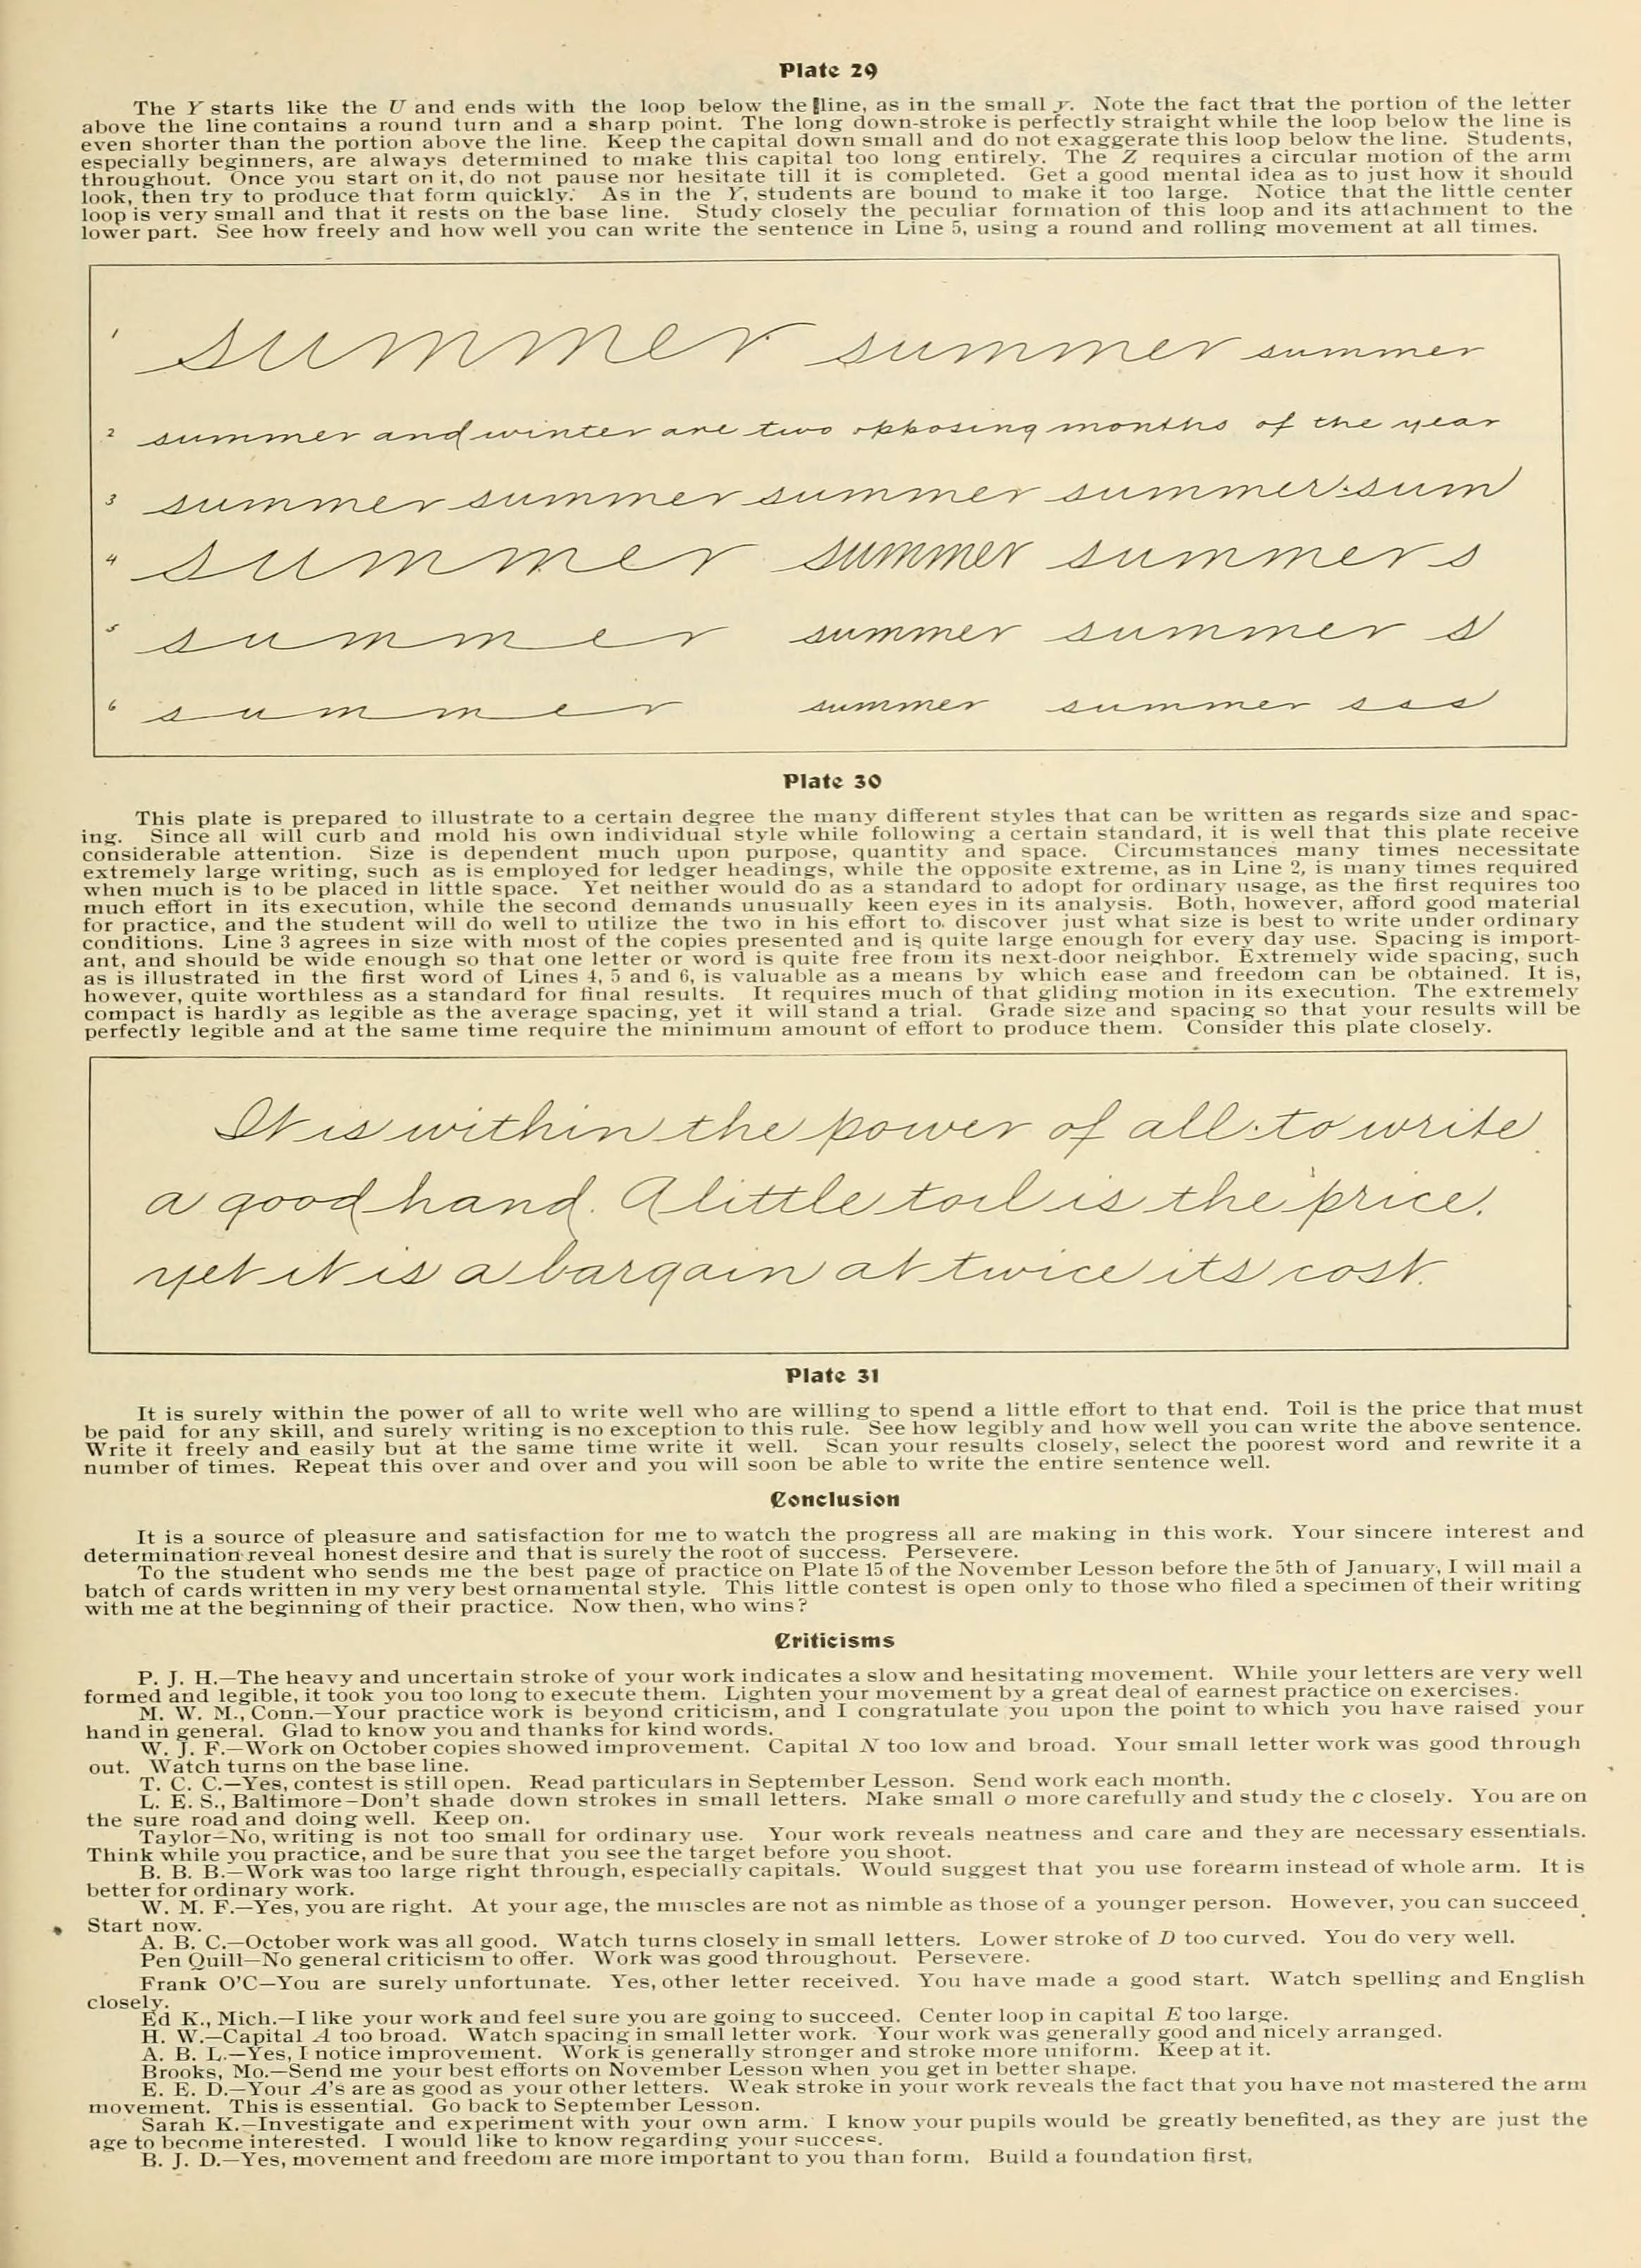 Plate 29
The Y starts like the U and ends with the loop below the line, as in the small y. Note the fact that the portion of the letter
above the line contains a round turn and a sharp point. The long down-stroke is perfectly straight while the loop below the line is
even shorter than the portion above the line. Keep the capital down small and do not exaggerate this loop below the line. Students,
especially beginners, are always determined to make this capital too long entirely. The Z requires a circular motion of the arm
throughout. Once you start on it, do not pause nor hesitate till it is completed. Get a good mental idea as to just how it should
look, then try to produce that form quickly. As in the Y, students are bound to make it too large. Notice that the little center
loop is very small and that it rests on the base line. Study closely the peculiar formation of this loop and its attachment to the
lower part. See how freely and how well you can write the sentence in Line 5, using a round and rolling movement at all times.
1 summer summer summer
2 summer and winter are two opposing months of the year
3 summer summer summer summer sum
4 summer summer summers
5 summer summer summer s
6 summer summer summer sss
Plate 30
This plate is prepared to illustrate to a certain degree the many different styles that can be written as regards size and spac-
ing. Since all will curb and mold his own individual style while following a certain standard, it is well that this plate receive
considerable attention. Size is dependent much upon purpose, quantity and space. Circumstances many times necessitate
extremely large writing, such as is employed for ledger headings, while the opposite extreme, as in Line 2, is many times required
when much is to be placed in little space. Yet neither would do as a standard to adopt for ordinary usage, as the first requires too
much effort in its execution, while the second demands unusually keen eyes in its analysis. Both, however, afford good material
for practice, and the student will do well to utilize the two in his effort to discover just what size is best to write under ordinary
conditions. Line 3 agrees in size with most of the copies presented and is quite large enough for every day use. Spacing is import-
ant, and should be wide enough so that one letter or word is quite free from its next-door neighbor. Extremely wide spacing, such
as is illustrated in the first word of Lines 4, 5 and 6, is valuable as a means by which ease and freedom can be obtained. It is,
however, quite worthless as a standard for final results. It requires much of that gliding motion in its execution. The extremely
compact is hardly as legible as the average spacing, yet it will stand a trial. Grade size and spacing so that your results will be
perfectly legible and at the same time require the minimum amount of effort to produce them. Consider this plate closely.
It is within the power of all to write
a good hand. A little toil is the price,
yet it is a bargain at twice its cost.
Plate 31
It is surely within the power of all to write well who are willing to spend a little effort to that end. Toil is the price that must
be paid for any skill, and surely writing is no exception to this rule. See how legibly and how well you can write the above sentence.
Write it freely and easily but at the same time write it well. Scan your results closely, select the poorest word and rewrite it a
number of times. Repeat this over and over and you will soon be able to write the entire sentence well.
Conclusion
It is a source of pleasure and satisfaction for me to watch the progress all are making in this work. Your sincere interest and
determination reveal honest desire and that is surely the root of success. Persevere.
To the student who sends me the best page of practice on Plate 15 of the November Lesson before the 5th of January, I will mail a
batch of cards written in my very best ornamental style. This little contest is open only to those who filed a specimen of their writing
with me at the beginning of their practice. Now then, who wins?
Criticisms
P. J. H.—The heavy and uncertain stroke of your work indicates a slow and hesitating movement. While your letters are very well
formed and legible, it took you too long to execute them. Lighten your movement by a great deal of earnest practice on exercises.
M. W. M., Conn.—Your practice work is beyond criticism, and I congratulate you upon the point to which you have raised your
hand in general. Glad to know you and thanks for kind words.
W. J. F.—Work on October copies showed improvement. Capital N too low and broad. Your small letter work was good through
out. Watch turns on the base line.
T. C. C.—Yes, contest is still open. Read particulars in September Lesson. Send work each month.
L. E. S., Baltimore—Don't shade down strokes in small letters. Make small o more carefully and study the c closely. You are on
the sure road and doing well. Keep on.
Taylor—No, writing is not too small for ordinary use. Your work reveals neatness and care and they are necessary essentials.
Think while you practice, and be sure that you see the target before you shoot.
B. B. B.—Work was too large right through, especially capitals. Would suggest that you use forearm instead of whole arm. It is
better for ordinary work.
W. M. F.—Yes, you are right. At your age, the muscles are not as nimble as those of a younger person. However, you can succeed.
Start now.
A. B. C.—October work was all good. Watch turns closely in small letters. Lower stroke of D too curved. You do very well.
Pen Quill—No general criticism to offer. Work was good throughout. Persevere.
Frank O'C—You are surely unfortunate. Yes, other letter received. You have made a good start. Watch spelling and English
closely.
Ed K., Mich.—I like your work and feel sure you are going to succeed. Center loop in capital E too large.
H. W.—Capital A too broad. Watch spacing in small letter work. Your work was generally good and nicely arranged.
A. B. L.—Yes, I notice improvement. Work is generally stronger and stroke more uniform. Keep at it.
Brooks, Mo.—Send me your best efforts on November Lesson when you get in better shape.
E. E. D.—Your A's are as good as your other letters. Weak stroke in your work reveals the fact that you have not mastered the arm
movement. This is essential. Go back to September Lesson.
Sarah K.—Investigate and experiment with your own arm. I know your pupils would be greatly benefited, as they are just the
age to become interested. I would like to know regarding your success.
B. J. D.—Yes, movement and freedom are more important to you than form. Build a foundation first.